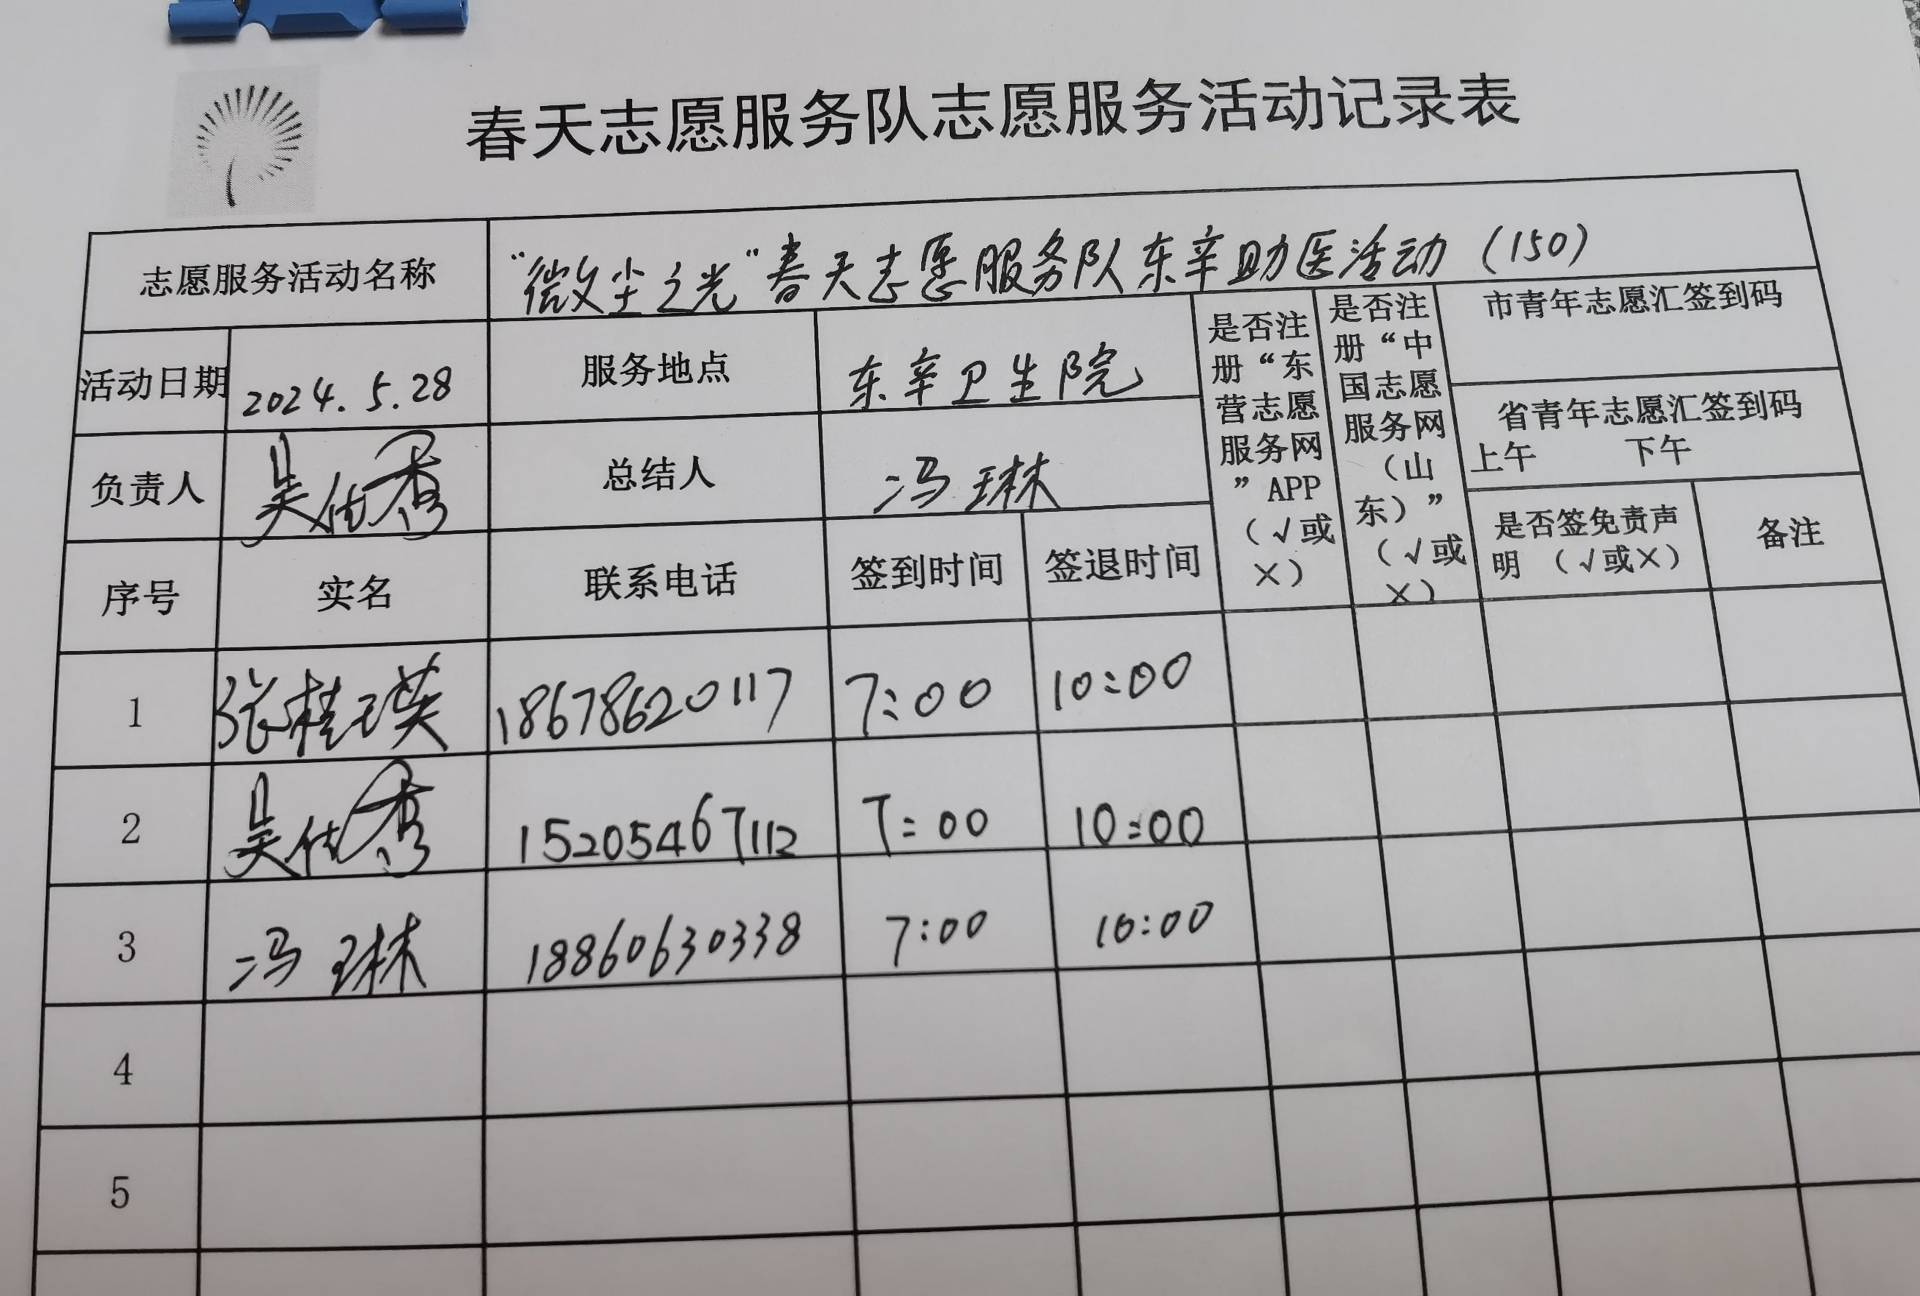 春天志愿服务队志愿服务活动记录表
志愿服务活动名称 “微尘之光”春天志愿服务队东辛助医活动（150）
活动日期 2024.5.28 服务地点 东辛卫生院
负责人 总结人 冯琳
是否注
册“东
营志愿
服务网
”APP
（√或
×）
是否注
册“中
国志愿
服务网
（山
东）”
（√或
×）
市青年志愿汇签到码
省青年志愿汇签到码
上午 下午
是否签免责声
明 （√或×）
备注
序号 实名 联系电话 签到时间 签退时间
1 张桂英 18678620117 7:00 10:00
2 15205467112 7:00 10:00
3 冯琳 18860630338 7:00 10:00
4
5